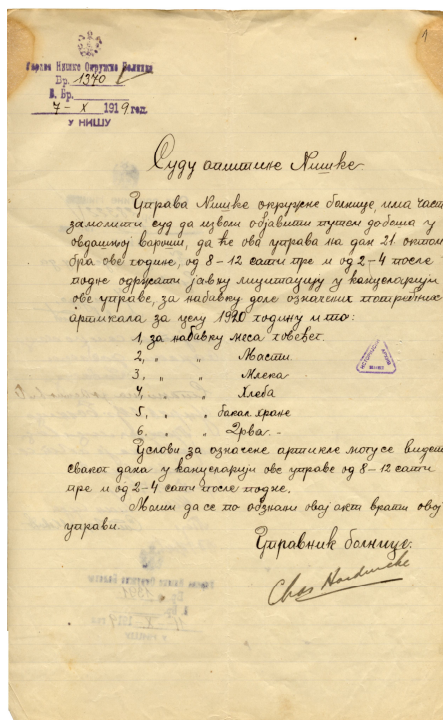 Управа Нишке Окружне Болнице
Бр. 1370
В. Бр.
7 – X 1919 год.
У НИШУ
1
Суду општине Нишке
Управа Нишке окружне болнице, има част
замолити суд да изволи објавити путем добоша у
овдашњој вароши, да ће ова управа на дан 21 октом
бра ове године, од 8–12 сати пре и од 2–4 после
подне одржати јавну лицитацију у канцеларији
ове управе, за набавку доле означених потребних
артикала за целу 1920 годину и то:
1, за набавку меса говеђег.
2, " " Масти
3, " " Млека
4 " " Хлеба
5, " " бакал. хране
6. " " Дрва. -
Услови за означене артикле могу се видети
сваког дана у канцеларији ове управе од 8–12 сати
пре и од 2–4 сати после подне.
Молим да се по обзнани овај акт врати овој
управи.
Управник болнице.
ИСТОРИЈСКИ АРХИВ
НИШ